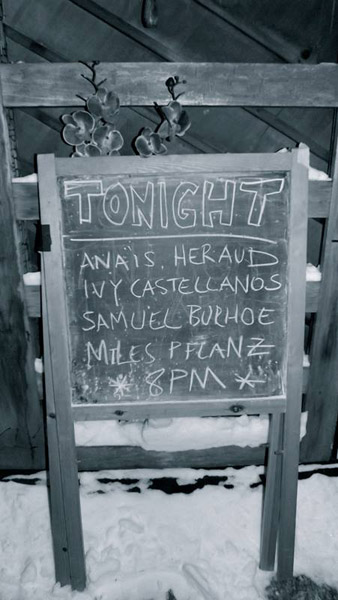 TONIGHT
ANAÏS. HERAUD
IVY CASTELLANOS
SAMUEL BURHOE
MILES PFLANZ
* 8PM *